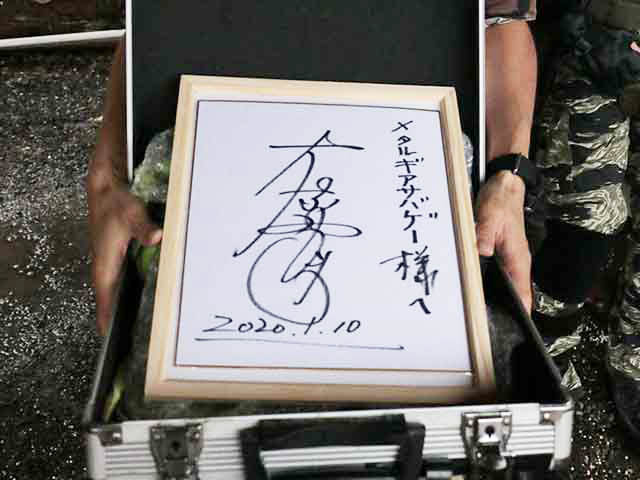 メタルギアサバゲー様へ
2020.1.10